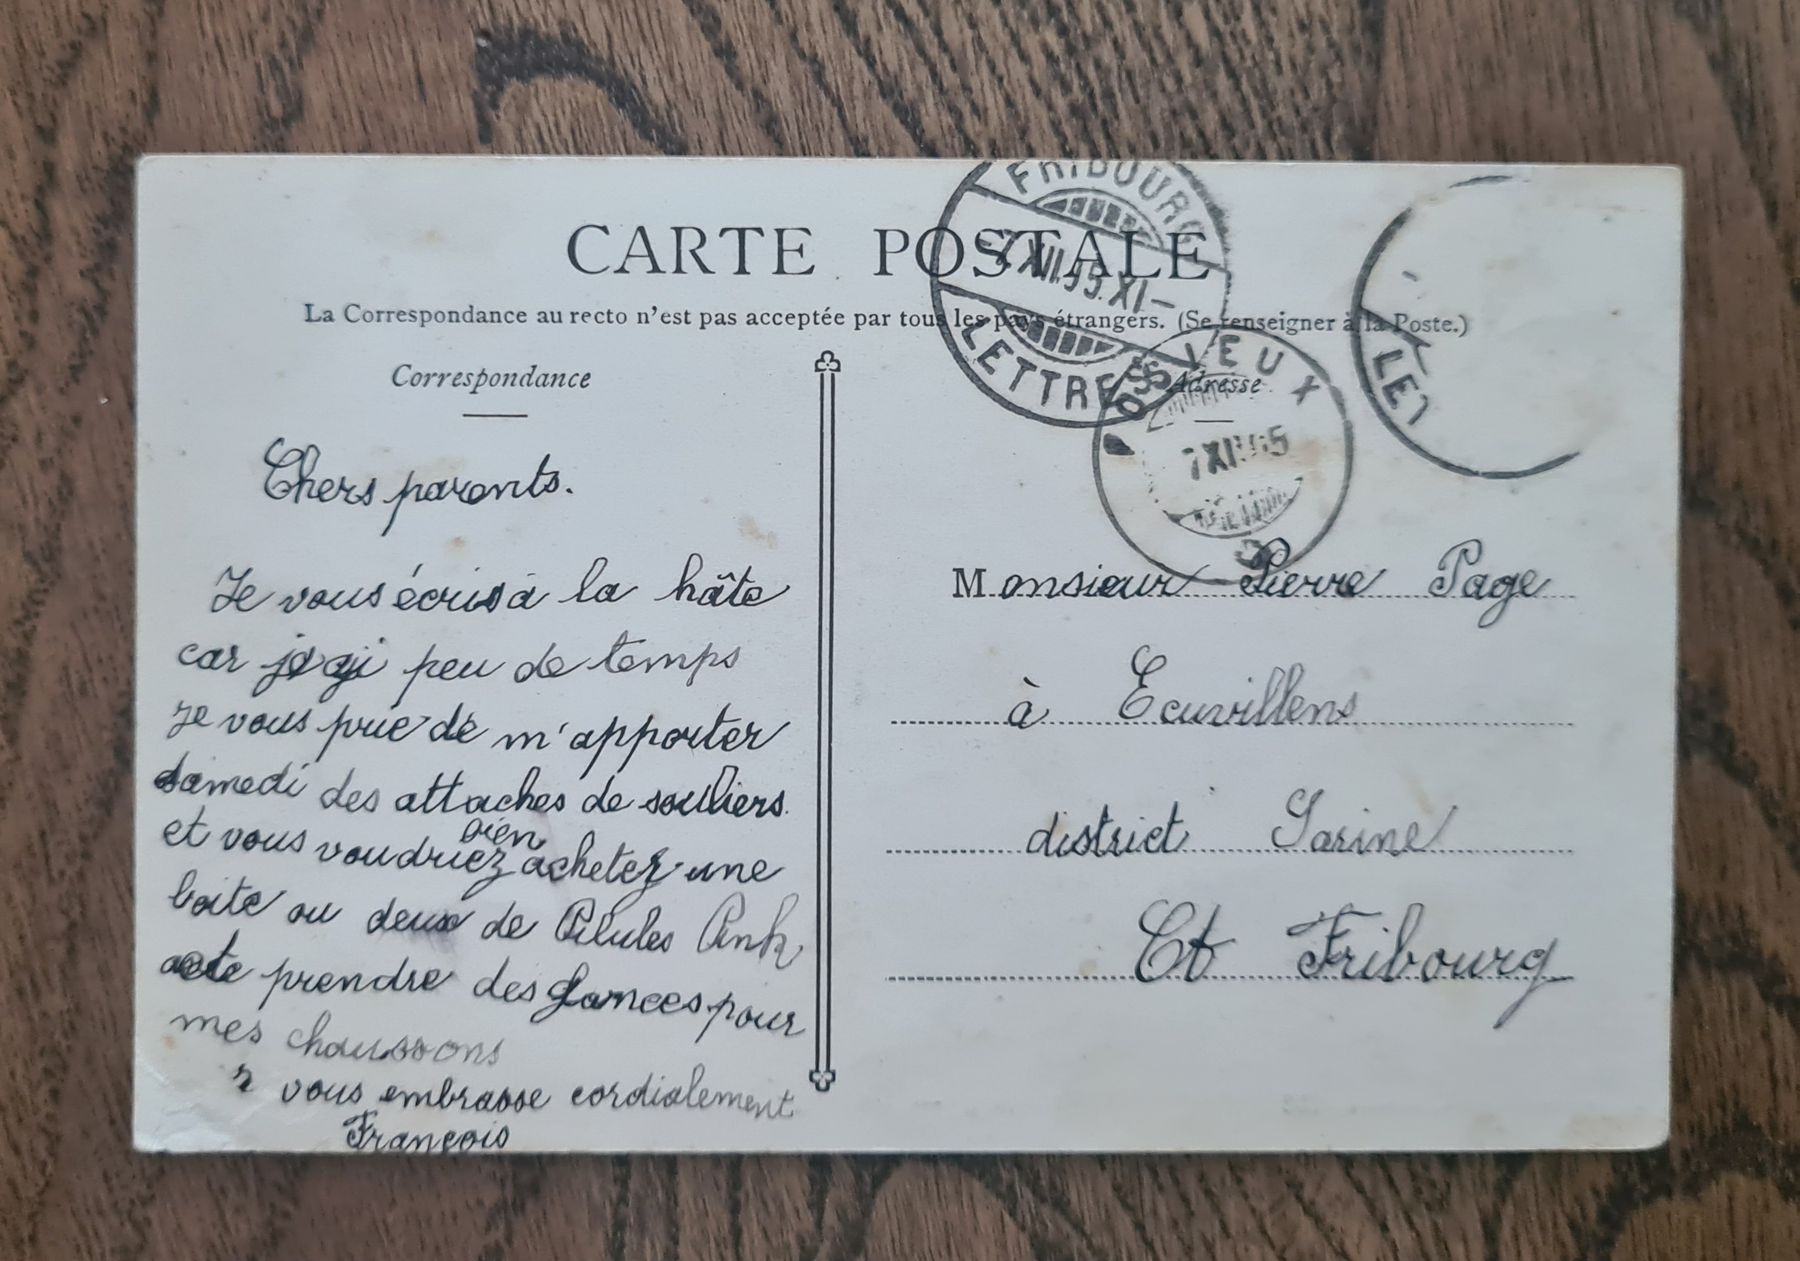 CARTE POSTALE
La Correspondance au recto n'est pas acceptée par tous les pays étrangers. (Se renseigner à la Poste.)
Correspondance
Chers parents.
Je vous écris à la hâte
car j'ai peu de temps
Je vous prie de m'apporter
samedi des attaches de souliers.
et vous voudriez bien achetez une
boite ou deux de Pilules Pink
prendre des pour
mes chaussons
vous embrasse cordialement
François
FRIBOURG
7 XII. 05. XI –
LETTRES
POSIEUX
7 XII 05
Adresse
LET
Monsieur Pierre Page
à Ecuvillens
district Sarine
Ct Fribourg